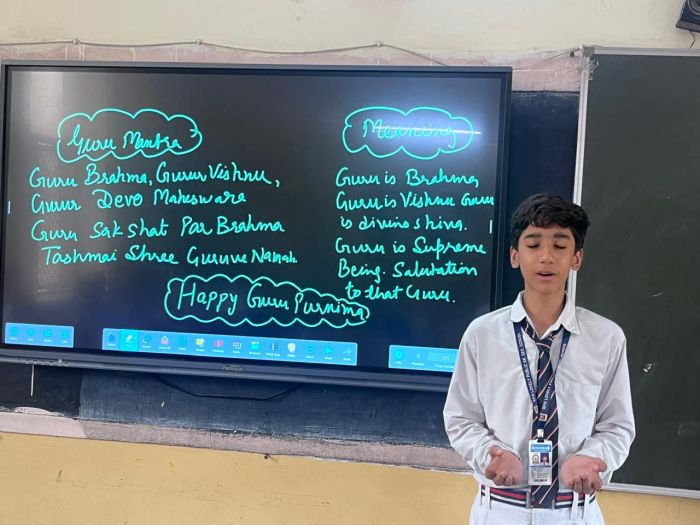 Guru Mantra
Guru Brahma, Gurur Vishnu,
Gurur Devo Maheswara
Guru Sakshat Par Brahma
Tashmai Shree Guruve Namah
Meaning
Guru is Brahma,
Guru is Vishnu Guru
is divino shiva.
Guru is Supreme
Being. Salutation
to that Guru.
Happy Guru Purnima